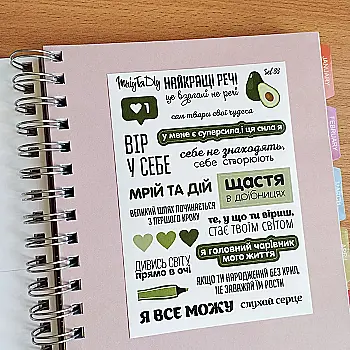 MriyTaDiy НАЙКРАЩІ РЕЧІ
це взагалі не речі
1
сам твори свої чудеса
ВІР
У СЕБЕ
у мене є суперсила,і ця сила я
себе не знаходять,
себе створюють
МРІЙ ТА ДІЙ
щастя
в дрібницях
ВЕЛИКИЙ ШЛЯХ ПОЧИНАЄТЬСЯ
З ПЕРШОГО КРОКУ
те, у що ти віриш,
стає твоїм світом
ДИВИСЬ СВІТУ
прямо в очі
я головний чарівник
мого життя
ЯКЩО ТИ НАРОДЖЕНИЙ БЕЗ КРИЛ,
НЕ ЗАВАЖАЙ ЇМ РОСТИ
Я ВСЕ МОЖУ
слухай серце
JANUARY
FEBRUARY